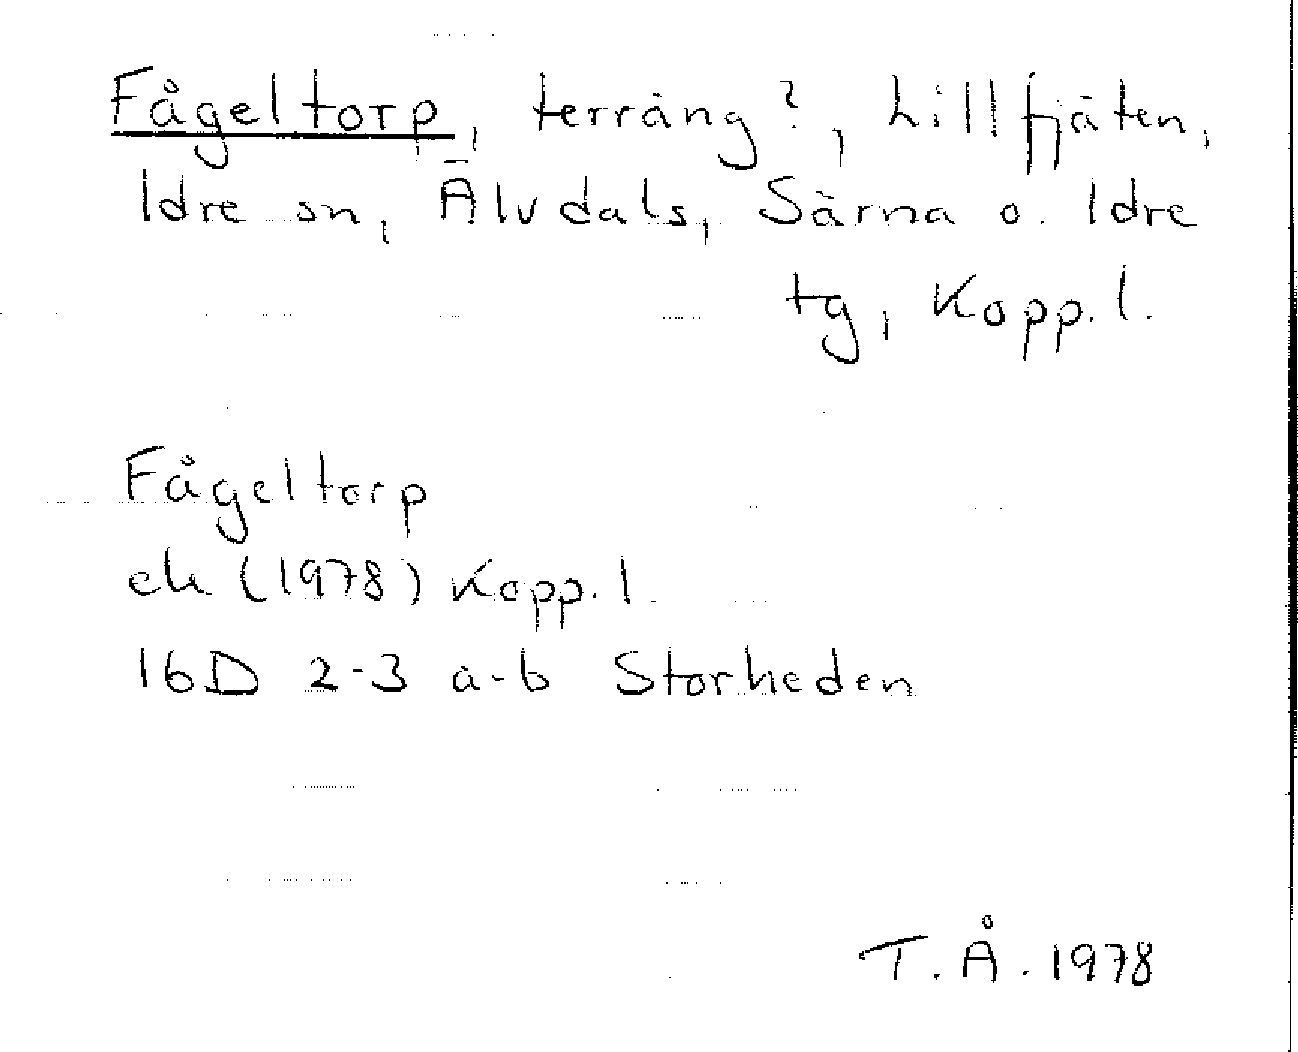 Fågeltorp, terräng?, Lillfjäten,
Idre sn, Älvdals, Särna o. Idre
tg, Kopp. l.
Fågeltorp
ek (1978) Kopp. l.
16D 2-3 a-b Storheden
T.Å. 1978